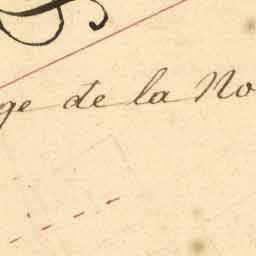 ge de la No